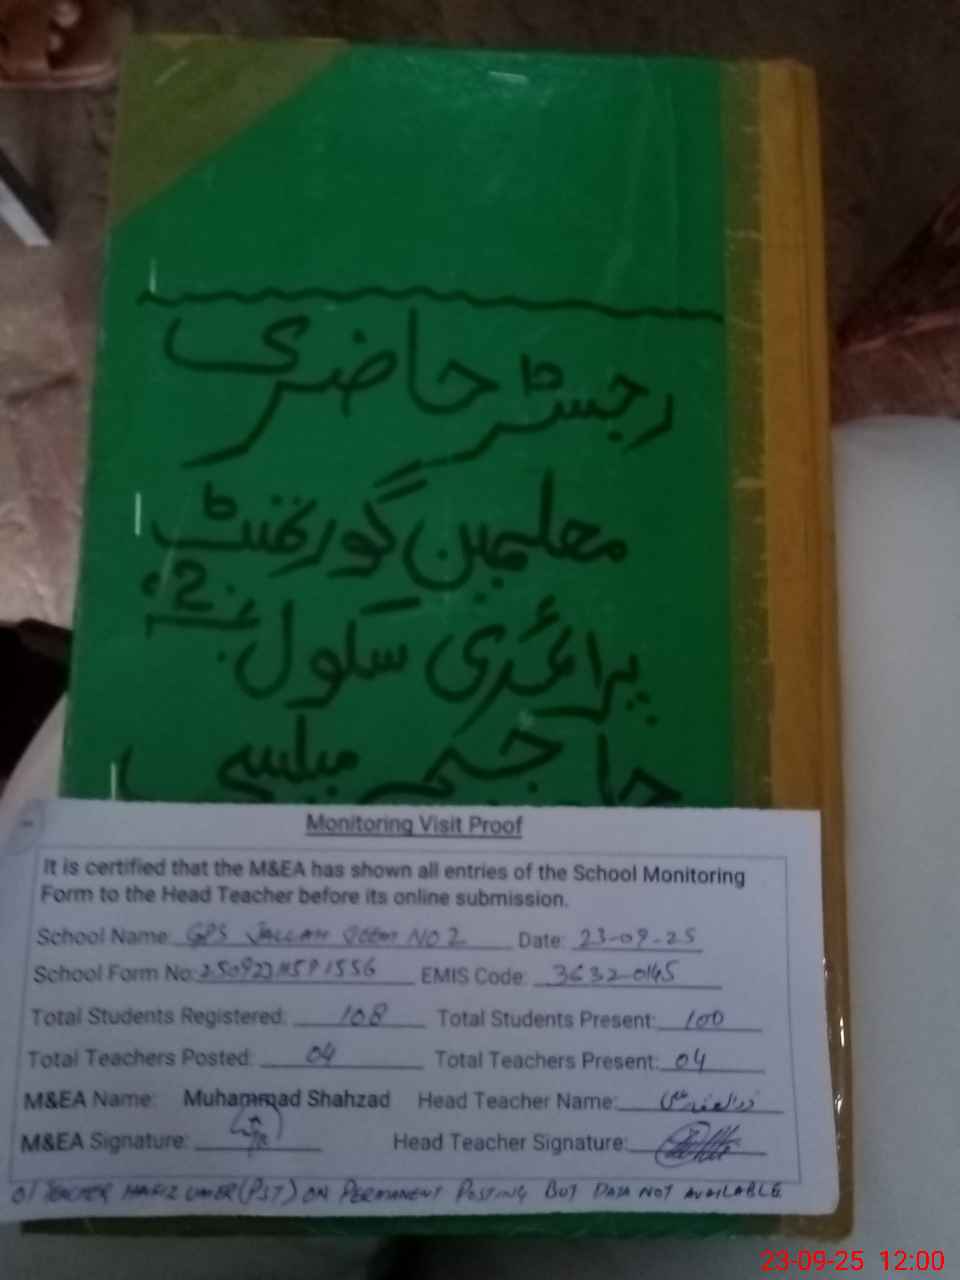 رجسٹر حاضری
معلمین گورنمنٹ
پرائمری سکول نمبر 2
Monitoring Visit Proof
It is certified that the M&EA has shown all entries of the School Monitoring
Form to the Head Teacher before its online submission.
School Name: GPS JALLAH JEEM NO 2 Date: 23-09-25
School Form No: EMIS Code: 36320145
Total Students Registered: 108 Total Students Present: 100
Total Teachers Posted: 04 Total Teachers Present: 04
M&EA Name: Muhammad Shahzad Head Teacher Name:
M&EA Signature: Head Teacher Signature:
01 TEACHER HAFIZ UMER (PST) ON PERMANENT POSTING BUT DATA NOT AVAILABLE
23-09-25 12:00